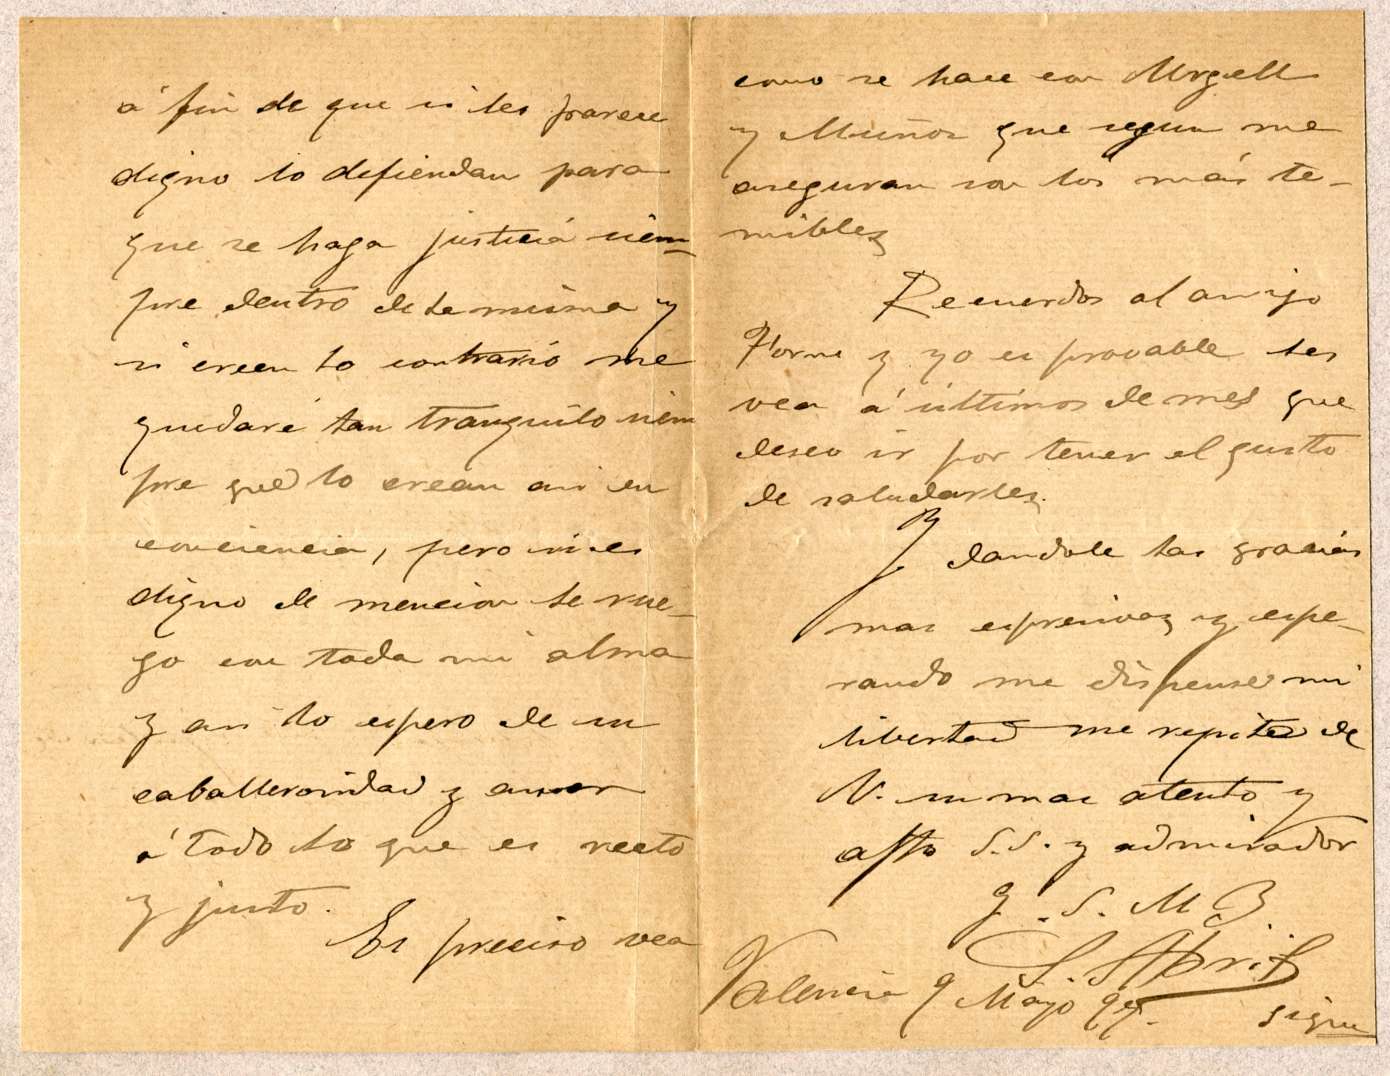 á fin de que si les parece
digno lo defiendan para
que se haga justicia siem-
pre dentro de la misma y
si creen lo contrario me
quedaré tan tranquilo siem
pre que lo crean asi en
conciencia, pero si es
digno de mencion le rue-
go con toda mi alma
y asi lo espero de su
caballerosidad y amor
á todo lo que es recto
y justo.
Es preciso vea
como se hace con Urgell
y Muñoz que segun me
aseguran son los más te-
mibles
Recuerdos al amigo
y yo es provable les
vea á ultimos de mes que
deseo ir por tener el gusto
de saludarles.
Y dandole las gracias
mas espresivas y espe-
rando me dispense mi
libertad me repite de
V. su mas atento y
affto S.S. y admirador
q. S. M. B.
S. Abril
Valencia 9 Mayo 97.
sigue